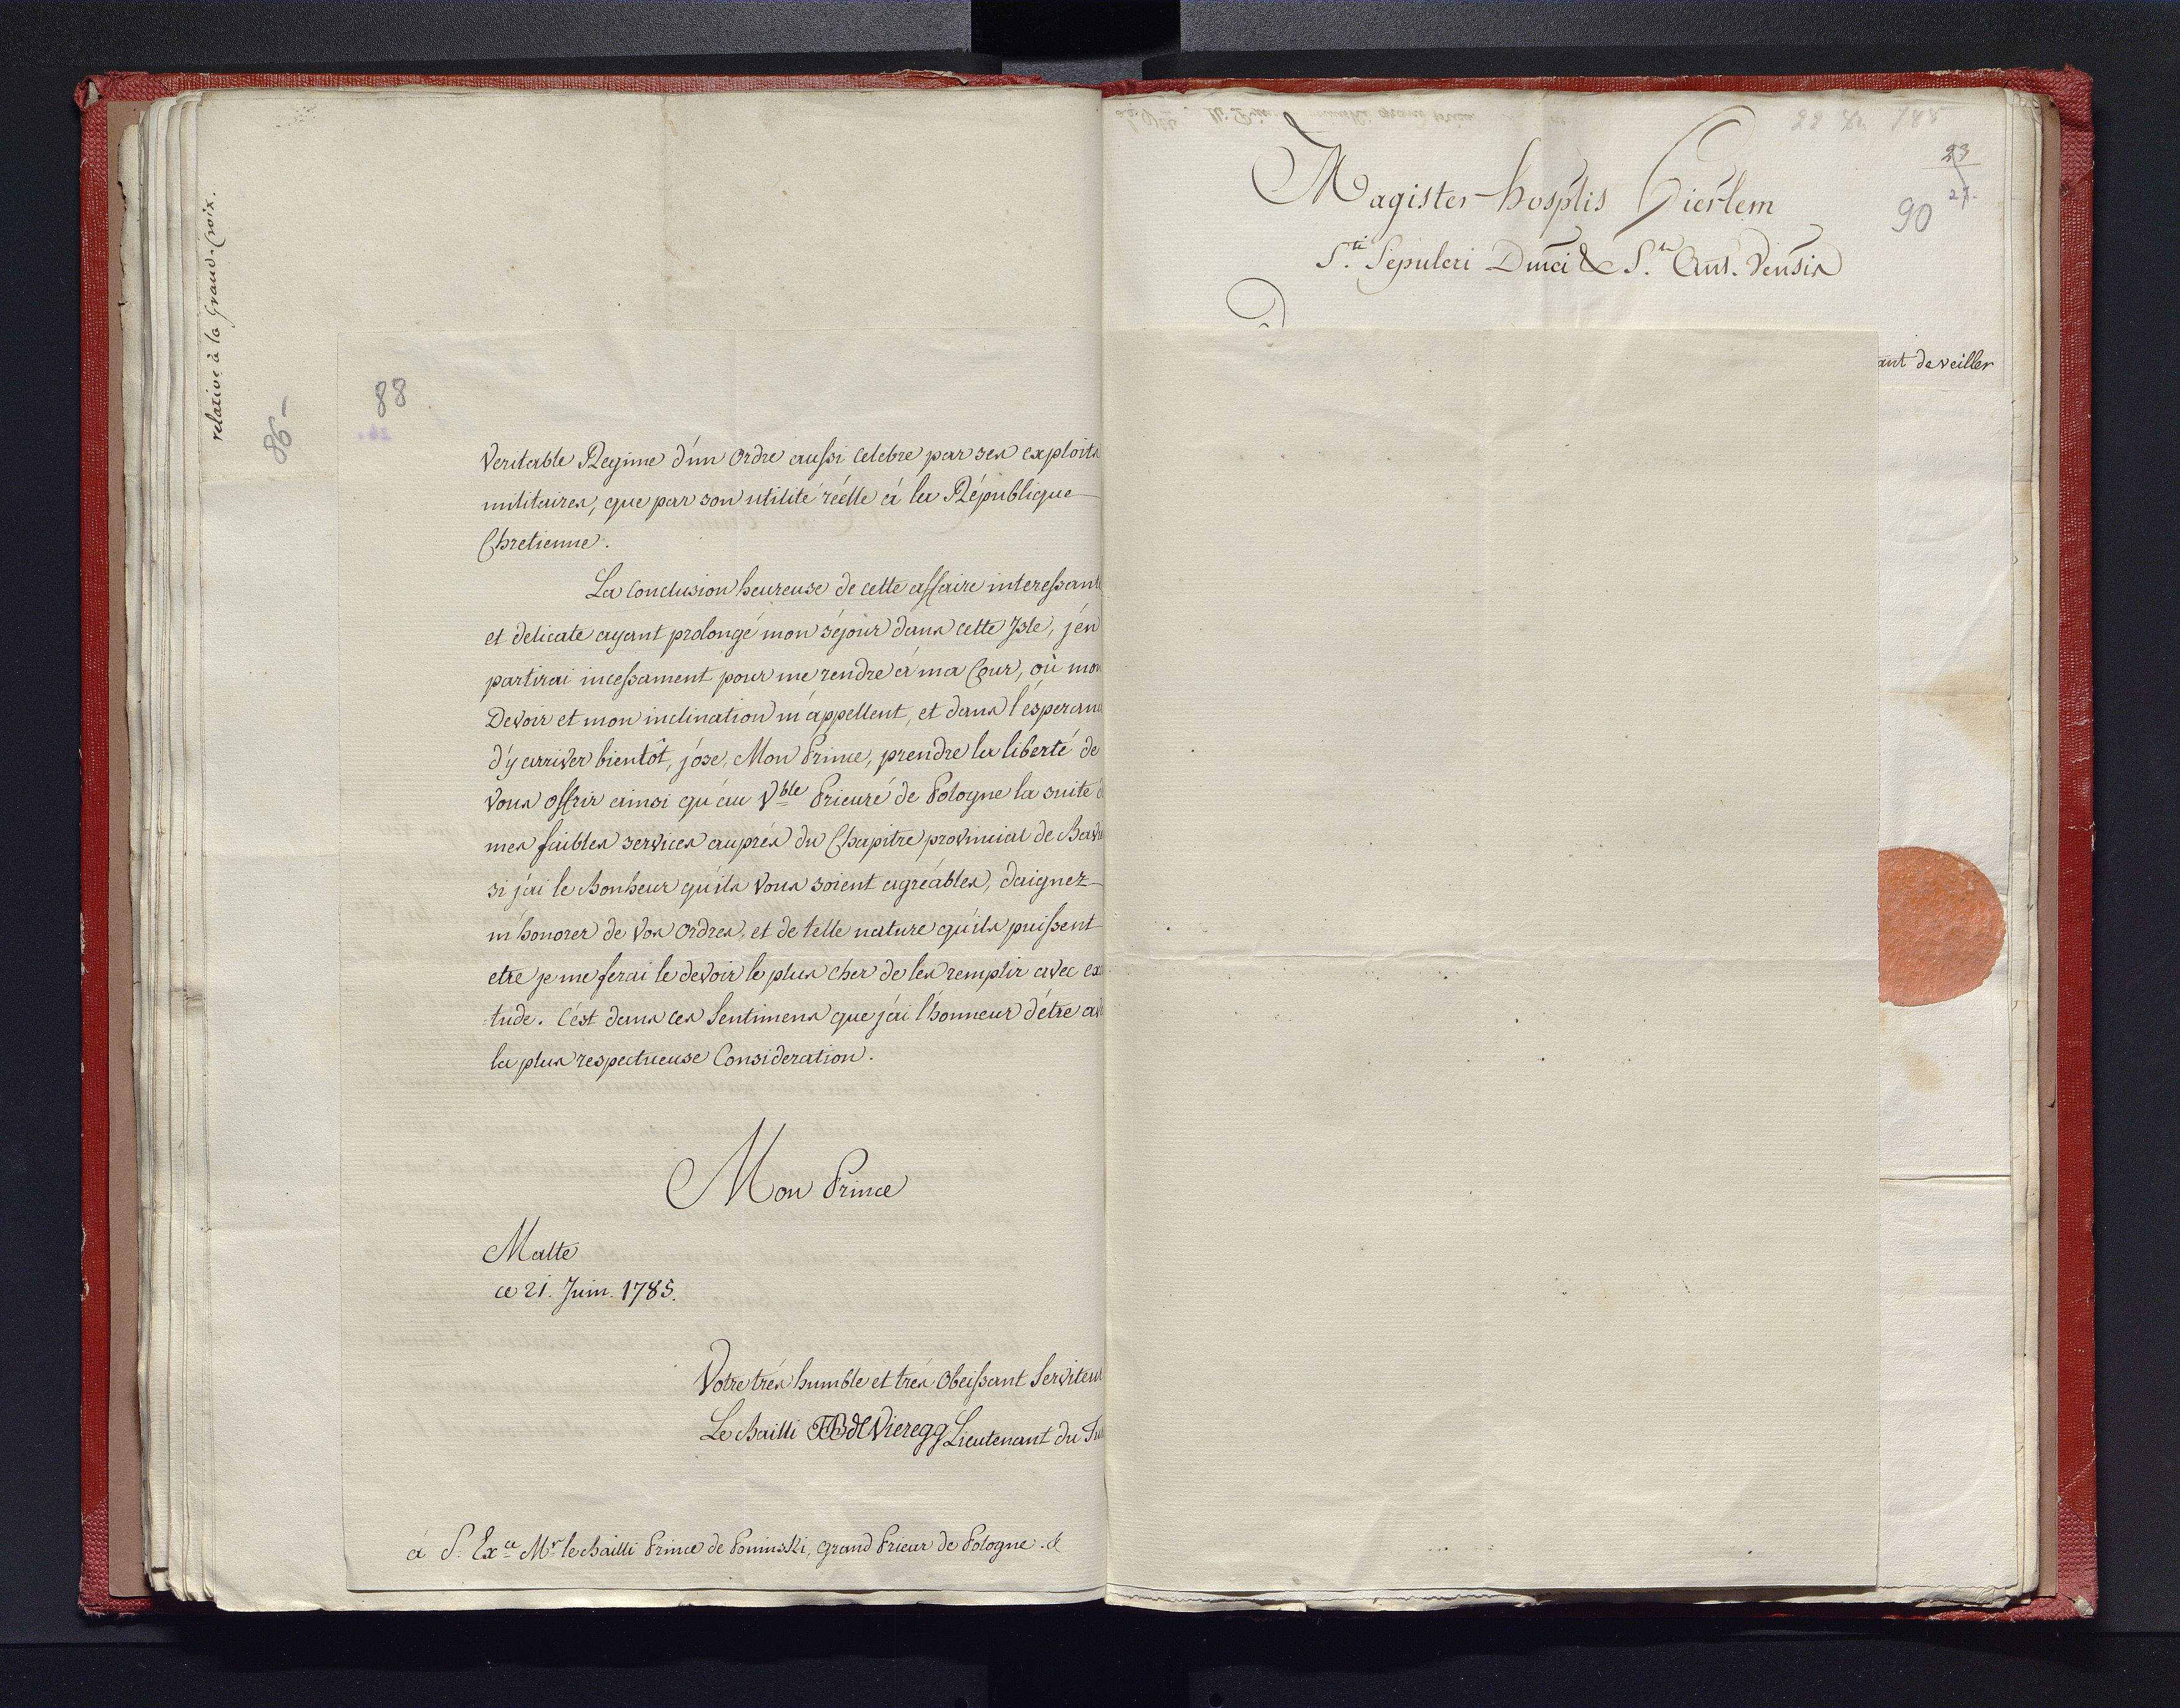 relative à la Grand-Croix.
86-
88
veritable Regime d'un Ordre aussi celebre par ses exploits
militaires, que par son utilité réelle à la République
Chretienne.
La Conclusion heureuse de cette affaire interessante
et delicate ayant prolongé mon séjour dans cette Isle, j'en
partirai incessament pour me rendre à ma Cour, où mon
Devoir et mon inclination m'appellent, et dans l'ésperan
d'y arriver bientôt, j'ose, Mon Prince, prendre la liberté de
vous offrir ainsi qu'au Vble Prieuré de Pologne la suite
mes faibles services auprés du Chapitre provincial de Bav
si j'ai le Bonheur qu'ils vous soient agréables, daignez
m'honorer de vos Ordres, et de telle nature qu'ils puissent
etre je me ferai le devoir le plus cher de les remplir avec ex
-tude. C'ést dans ces Sentimens que j'ai l'honneur d'étre av
la plus respectueuse Consideration.
Mon Prince
Malte
ce 21. Juin. 1785.
Votre trés humble et trés Obeissant Serviteur
Le Bailli de Vieregg Lieutenant du Tu
à S. Exce Mr le Bailli Prince de Poninski, Grand Prieur de Pologne. &
23
27.
90
Magister Hosplis Hierlem
S.ti Sepulcri Dnici & S.ti Ant. Vensis
ant de veiller